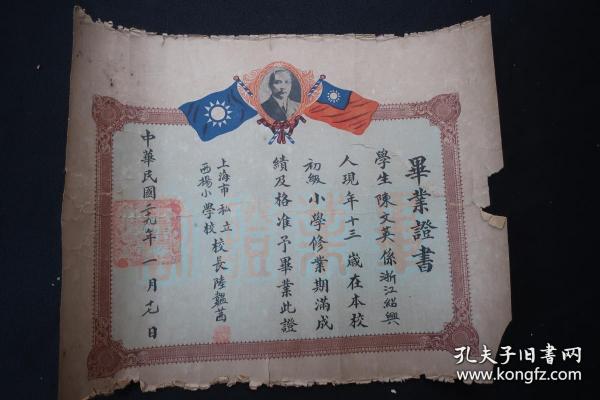 畢業證書
學生陳文英係浙江紹興
人現年十三歲在本校
初級小學修業期滿成
績及格准予畢業此證
上海市私立
西楊小學校校長陸韞茜
中華民國二十九年一月十九日
孔夫子旧书网
www.kongfz.com